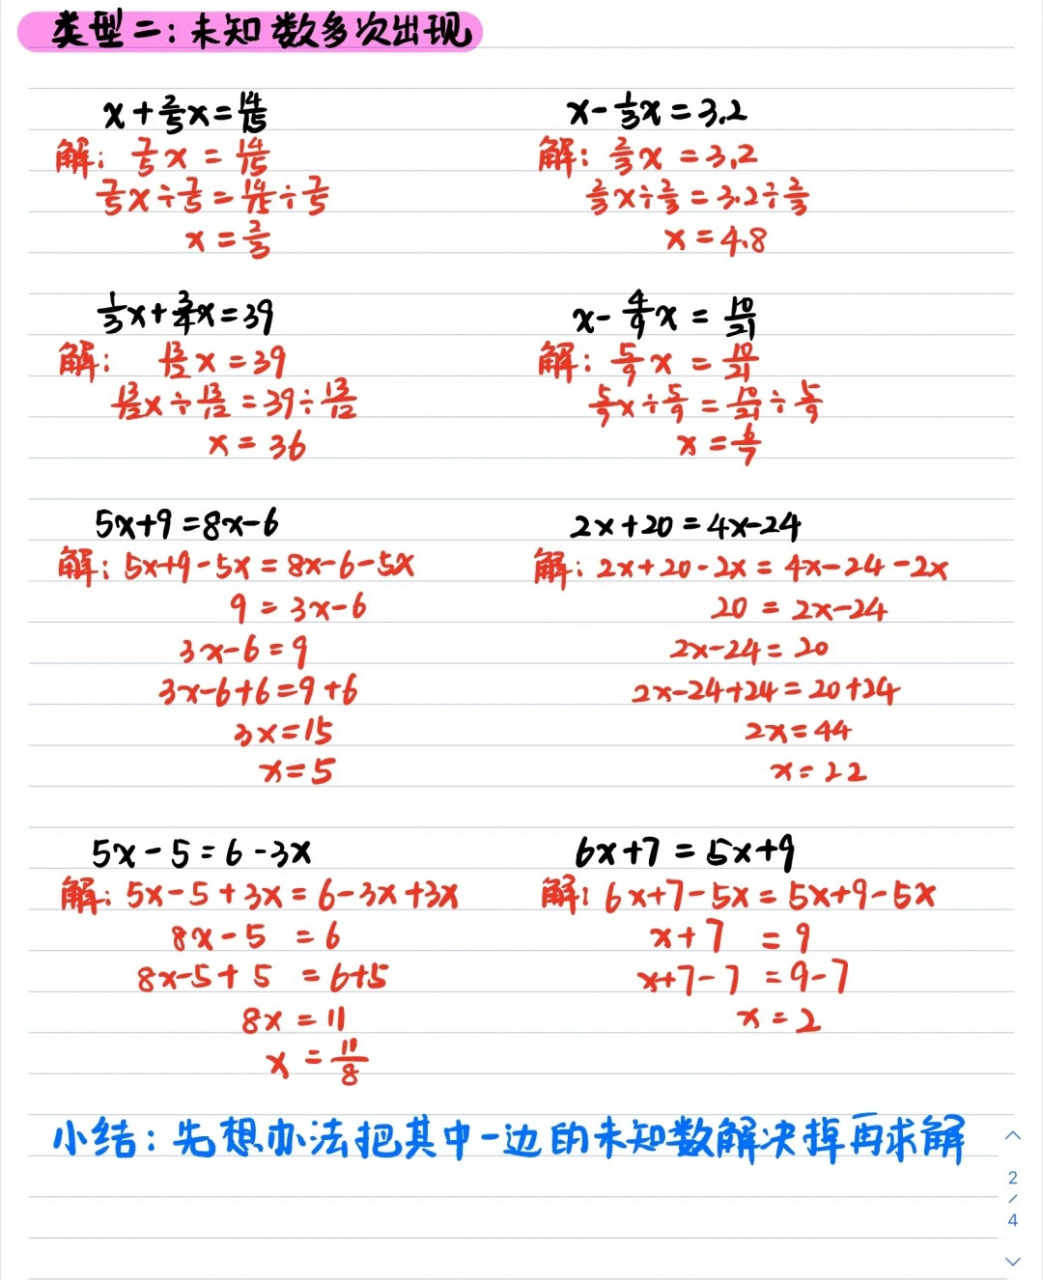 类型二：未知数多次出现
x+2/5x=14/15
解：7/5x=14/15
7/5x÷7/5=14/15÷7/5
x=2/3
x-1/3x=3.2
解：2/3x=3.2
2/3x÷2/3=3.2÷2/3
x=4.8
1/3x+3/4x=39
解：13/12x=39
13/12x÷13/12=39÷13/12
x=36
x-4/9x=10/21
解：5/9x=10/21
5/9x÷5/9=10/21÷5/9
x=6/7
5x+9=8x-6
解：5x+9-5x=8x-6-5x
9=3x-6
3x-6=9
3x-6+6=9+6
3x=15
x=5
2x+20=4x-24
解：2x+20-2x=4x-24-2x
20=2x-24
2x-24=20
2x-24+24=20+24
2x=44
x=22
5x-5=6-3x
解：5x-5+3x=6-3x+3x
8x-5=6
8x-5+5=6+5
8x=11
x=11/8
6x+7=5x+9
解：6x+7-5x=5x+9-5x
x+7=9
x+7-7=9-7
x=2
小结：先想办法把其中一边的未知数解决掉再求解
2
/
4